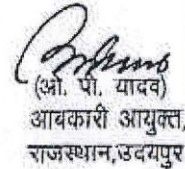 (ओ. पी. यादव)
आबकारी आयुक्त,
राजस्थान,उदयपुर